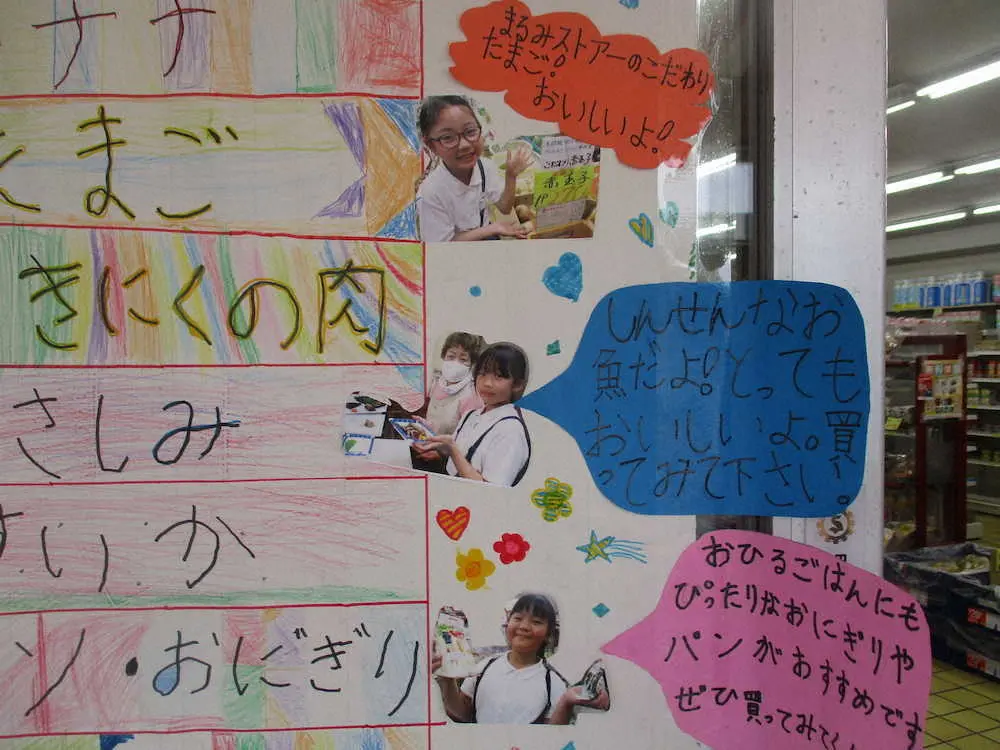 ナナ
まるみストアーのこだわり
たまご。
おいしいよ!
たまご
赤玉子
きにくの肉
しんせんなお
魚だよ!とっても
おいしいよ。買
ってみて下さい。
さしみ
すいか
おひるごはんにも
ぴったりなおにぎりや
パンがおすすめです
ぜひ買ってみてく
ン・おにぎり